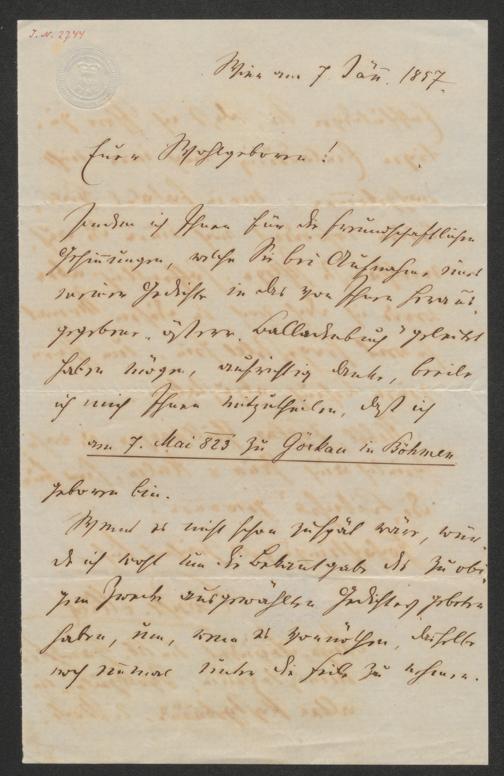 J. N. 2744
Wien am 7 Jän. 1857.
Euer Wohlgeboren!
Indem ich Ihnen für die freundschaftlichen
Gesinnungen, welche Sie bei Aufnahme eines
meiner Gedichte in das von Ihnen heraus-
gegebene „österr. Balladenbuch“ geleitet
haben mögen, aufrichtig danke, beeile
ich mich Ihnen mitzutheilen, daß ich
am 7. Mai 823 zu Görkau in Böhmen
geboren bin.
Wenn es nicht schon zu spät wäre, wür-
de ich wohl um die Bekanntgabe des zu obi-
gem Zwecke ausgewählten Gedichtes gebeten
haben, um, wenn es vonnöthen, dasselbe
noch einmal unter die Feile zu nehmen.